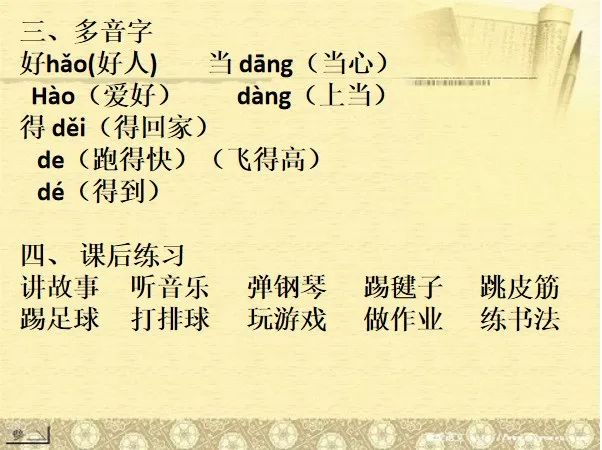 三、多音字
好hǎo(好人) 当 dāng（当心）
Hào（爱好） dàng（上当）
得 děi（得回家）
de（跑得快）（飞得高）
dé（得到）
四、 课后练习
讲故事 听音乐 弹钢琴 踢毽子 跳皮筋
踢足球 打排球 玩游戏 做作业 练书法